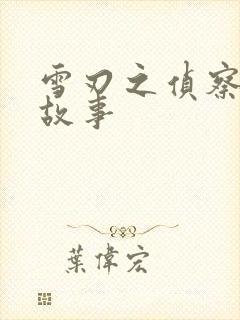 雪刃之偵察
故事
葉偉宏